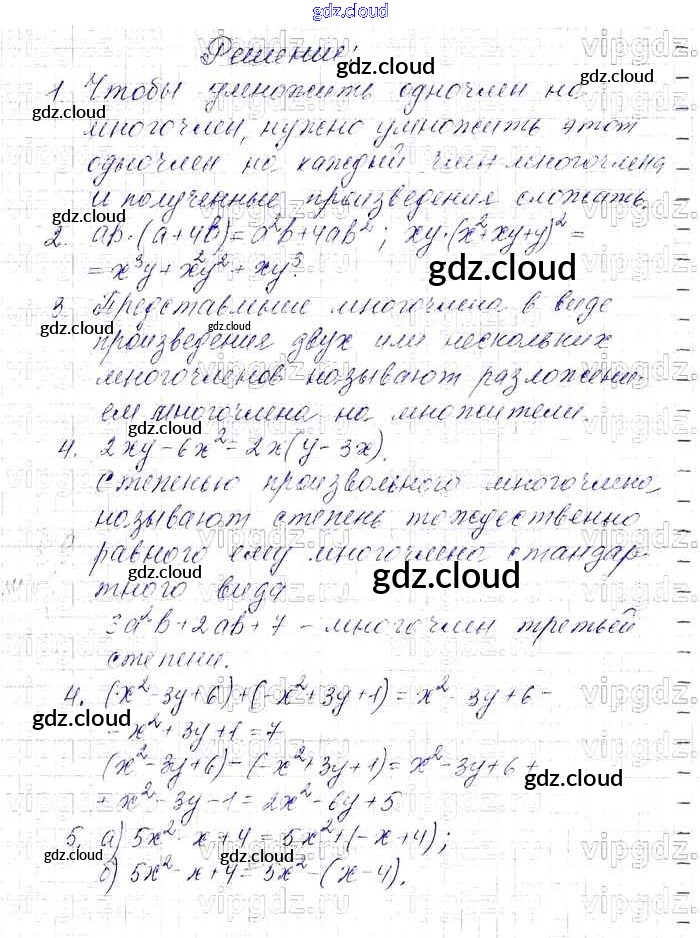 gdz.cloud
Решение:
1. Чтобы умножить одночлен на
многочлен, нужно умножить этот
одночлен на каждый член многочлена
и полученные произведения сложать.
2. ab·(a+4b)=a²b+4ab²; xy·(x²+xy+y)² =
= x³y+x²y²+xy³.
3. Представление многочлена в виде
произведения двух или нескольких
многочленов называют разложени-
ем многочлена на множители.
4. 2xy-6x²=2x(y-3x).
Степенью произвольного многочлена
называют степень тождественно
равного ему многочлена стандар-
тного вида
3a²b+2ab+7 - многочлен третьей
степени.
4. (x²-3y+6)+(-x²+3y+1)=x²-3y+6-
-x²+3y+1=7
(x²-3y+6)-(-x²+3y+1)=x²-3y+6+
+x²-3y-1=2x²-6y+5
5. а) 5x²-x+4=5x²+(-x+4);
б) 5x²-x+4=5x²-(x-4).